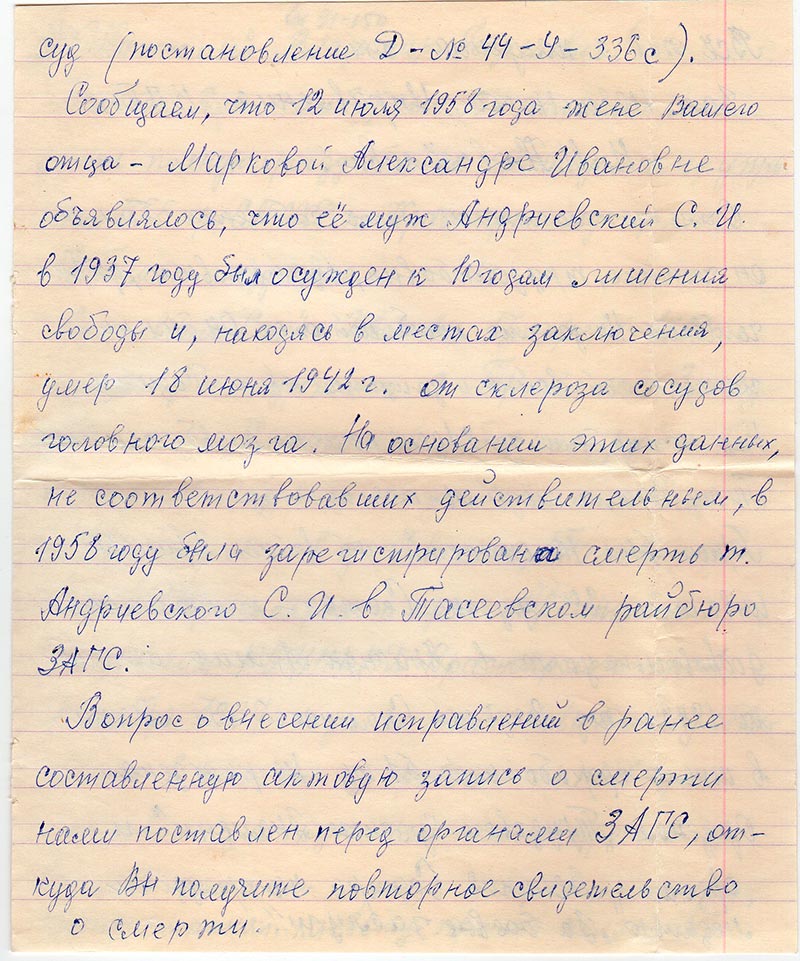 суд (постановление Д-№ 44-У-336с).
Сообщаем, что 12 июля 1958 года жене Вашего
отца - Марковой Александре Ивановне
объявлялось, что её муж Андриевский С. И.
в 1937 году был осужден к 10 годам лишения
свободы и, находясь в местах заключения,
умер 18 июня 1942 г. от склероза сосудов
головного мозга. На основании этих данных,
не соответствовавших действительным, в
1958 году была зарегистрирована смерть т.
Андриевского С. И. в Тасеевском райбюро
ЗАГС.
Вопрос о внесении исправлений в ранее
составленную актовую запись о смерти
нами поставлен перед органами ЗАГС, от-
куда Вы получите повторное свидетельство
о смерти.